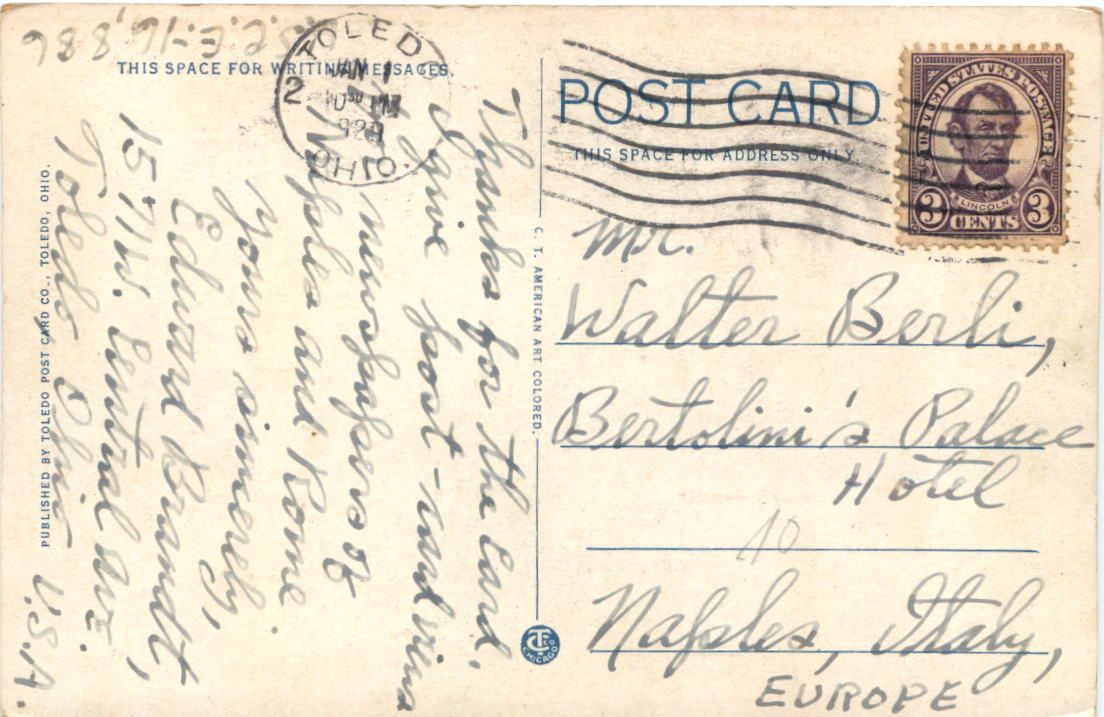 THIS SPACE FOR WRITING MESSAGES.
TOLEDO
2
JAN
PM
OHIO.
POST CARD
THIS SPACE FOR ADDRESS ONLY.
UNITED STATES POSTAGE
LINCOLN
3 CENTS 3
Thanks for the Card.
I give post-card views
newspapers of
Naples and Rome
yours sincerely,
Edward Brandt,
1571 W. Central Ave.
Toledo Ohio U.S.A.
PUBLISHED BY TOLEDO POST CARD CO., TOLEDO, OHIO.
C. T. AMERICAN ART COLORED.
CT CO
CHICAGO
Mr.
Walter Berli,
Bertolini's Palace
Hotel
10
Naples, Italy,
EUROPE